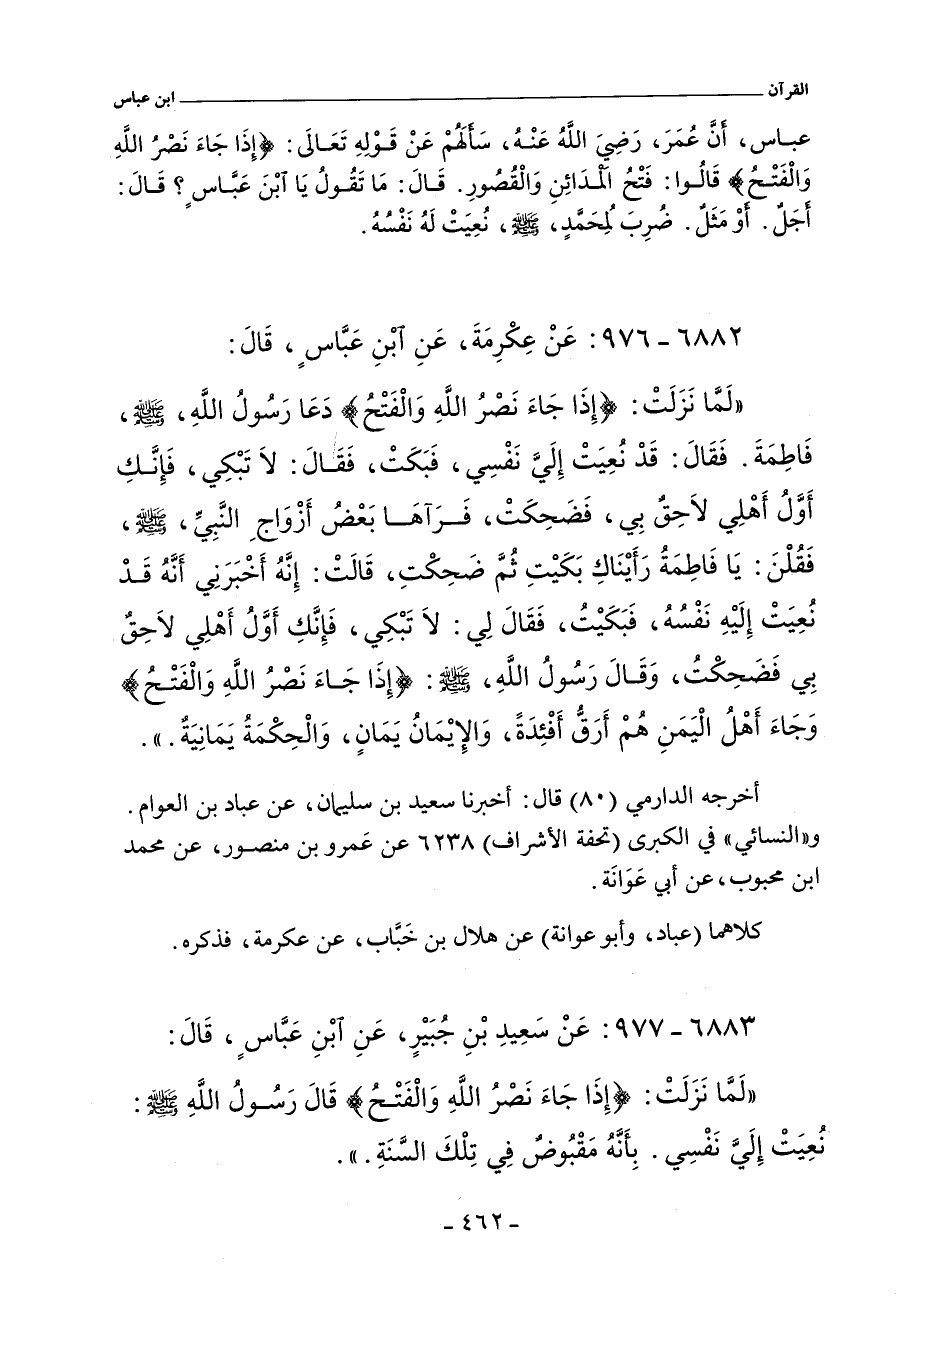 القرآن ـــــــــــــــــــــــــــــــــــــــــــــــــ ابن عباس
عبـاس، أَنَّ عُمَرَ، رَضِيَ اللَّهُ عَنْهُ، سَأَلَهُمْ عَنْ قَوْلِهِ تَعَالَى: ﴿إِذَا جَاءَ نَصْرُ اللَّهِ
وَالْفَتْحُ﴾ قَالُوا: فَتْحُ الْمَدَائِنِ وَالْقُصُورِ. قَالَ: مَا تَقُولُ يَا ابْنَ عَبَّاسٍ؟ قَالَ:
أَجَلٌ. أَوْ مَثَلٌ. ضُرِبَ لِمُحَمَّدٍ، ﷺ، نُعِيَتْ لَهُ نَفْسُهُ.
٦٨٨٢ - ٩٧٦: عَنْ عِكْرِمَةَ، عَنِ ابْنِ عَبَّاسٍ، قَالَ:
«لَمَّا نَزَلَتْ: ﴿إِذَا جَاءَ نَصْرُ اللَّهِ وَالْفَتْحُ﴾ دَعَا رَسُولُ اللَّهِ، ﷺ،
فَاطِمَةَ. فَقَالَ: قَدْ نُعِيَتْ إِلَيَّ نَفْسِي، فَبَكَتْ، فَقَالَ: لاَ تَبْكِي، فَإِنَّـكِ
أَوَّلُ أَهْلِي لاَحِقٌ بِي، فَضَحِكَتْ، فَـرَآهَـا بَعْضُ أَزْوَاجِ النَّبِيِّ، ﷺ،
فَقُلْنَ: يَا فَاطِمَةُ رَأَيْنَاكِ بَكَيْتِ ثُمَّ ضَحِكْتِ، قَالَتْ: إِنَّهُ أَخْبَرَنِي أَنَّهُ قَـدْ
نُعِيَتْ إِلَيْهِ نَفْسُهُ، فَبَكَيْتُ، فَقَالَ لِي: لاَ تَبْكِي، فَإِنَّكِ أَوَّلُ أَهْلِي لاَحِقٌ
بِي فَضَحِكْتُ، وَقَـالَ رَسُولُ اللَّهِ، ﷺ: ﴿إِذَا جَـاءَ نَصْرُ اللَّهِ وَالْفَتْحُ﴾
وَجَاءَ أَهْلُ الْيَمَنِ هُمْ أَرَقُّ أَفْئِدَةً، وَالإِيْمَانُ يَمَانٍ، وَالْحِكْمَةُ يَمَانِيَةٌ.».
أخرجه الدارمي (٨٠) قال: أخبرنا سعيد بن سليمان، عن عباد بن العوام.
و«النسائي» في الكبرى (تحفة الأشراف) ٦٢٣٨ عن عَمرو بن منصـور، عن محمد
ابن محبوب، عن أبي عَوَانَة.
كلاهما (عباد، وأبو عوانة) عن هلال بن خَبَّاب، عن عكرمة، فذكره.
٦٨٨٣ - ٩٧٧: عَنْ سَعِيدِ بْنِ جُبَيْرٍ، عَنِ ابْنِ عَبَّاسٍ، قَالَ:
«لَمَّا نَزَلَتْ: ﴿إِذَا جَاءَ نَصْرُ اللَّهِ وَالْفَتْـحُ﴾ قَالَ رَسُـولُ اللَّهِ ﷺ:
نُعِيَتْ إِلَيَّ نَفْسِي. بِأَنَّهُ مَقْبُوضٌ فِي تِلْكَ السَّنَةِ.».
- ٤٦٢ -